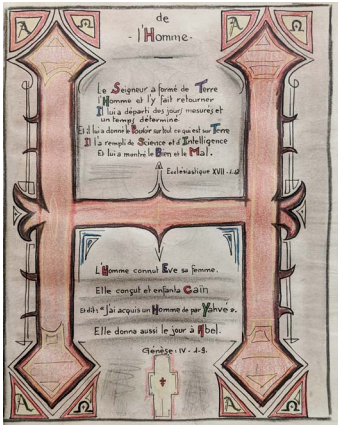 de
- l'Homme -
A Ω
A Ω
Le Seigneur a formé de Terre
l'Homme et l'y fait retourner
Il lui a départi des jours mesurés et
un temps déterminé
Et il lui a donné Pouvoir sur tout ce qui est sur Terre
Il l'a rempli de Science et d'Intelligence
Et lui a montré le Bien et le Mal.
Ecclésiastique XVII
L'Homme connut Eve sa femme.
Elle conçut et enfanta Caïn
Et dit: "J'ai acquis un Homme de par Yahvé".
Elle donna aussi le jour à Abel.
Genèse: IV - 1-9.
A Ω
A Ω